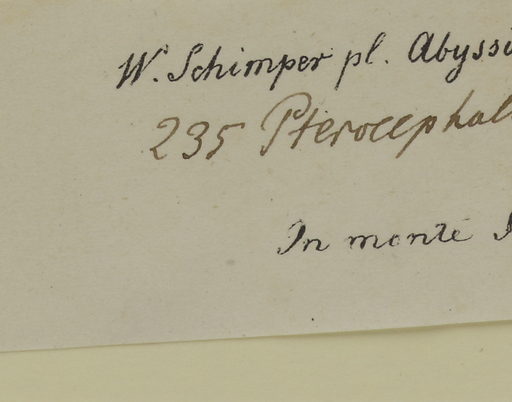 W. Schimper pl. Abyssi
235 Pterocephal
In monte